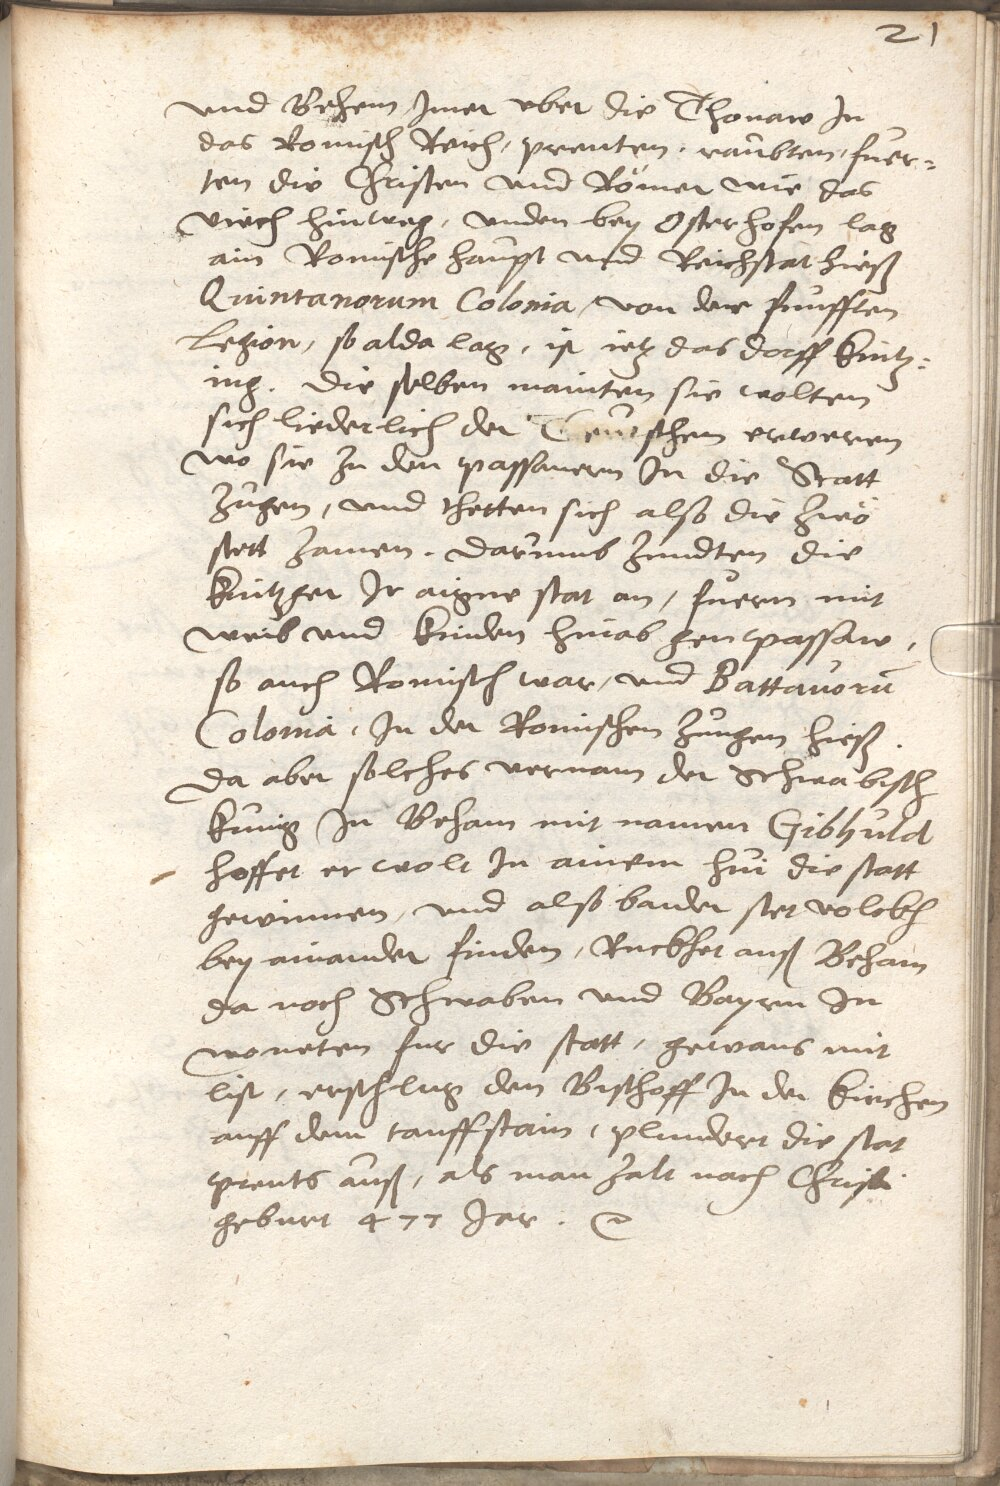 21
vnd Behem Jmer vber die Thonaw Jn
das Romisch Reich, prenten, raubten, fuer=
ten die Christen vnd Römer wie das
viech hinweg, vnden bey Osterhofen lag
ain Romische haupt vnd Reichstat hieß
Quintanorum Colonia, von der funfften
Legion, so alda lag, ist ietz das dorff kintz=
ing. Die selben mainten sie wolten
sich liederlich der Teutschen erweren
wo sie zu den passauern Jn die Statt
zugen, vnd thetten sich also die zwo
stett zamen. Darumb zundten die
kintzger Jr aigne stat an, fuern mit
weib vnd kinden hinab gen passaw,
so auch Romisch war, vnd Battauorū
Colonia, Jn der Romischen zungen hieß.
Da aber solches vernam der Schwabisch
kunig Jn Beham mit namen Gibhuld
hoffet er wolt Jn ainem hui die statt
gewinnen, vnd also baider stet volckh
bey ainander finden, Ruckhet auß Beham
da noch Schwaben vnd Bayrn Jn
woneten fur die statt, gewans mit
list, erschlug den Bischoff Jn der kirchen
auff dem tauffstain, plundert die stat
prents auß, als man zalt nach Christi
geburt 477 Jar.